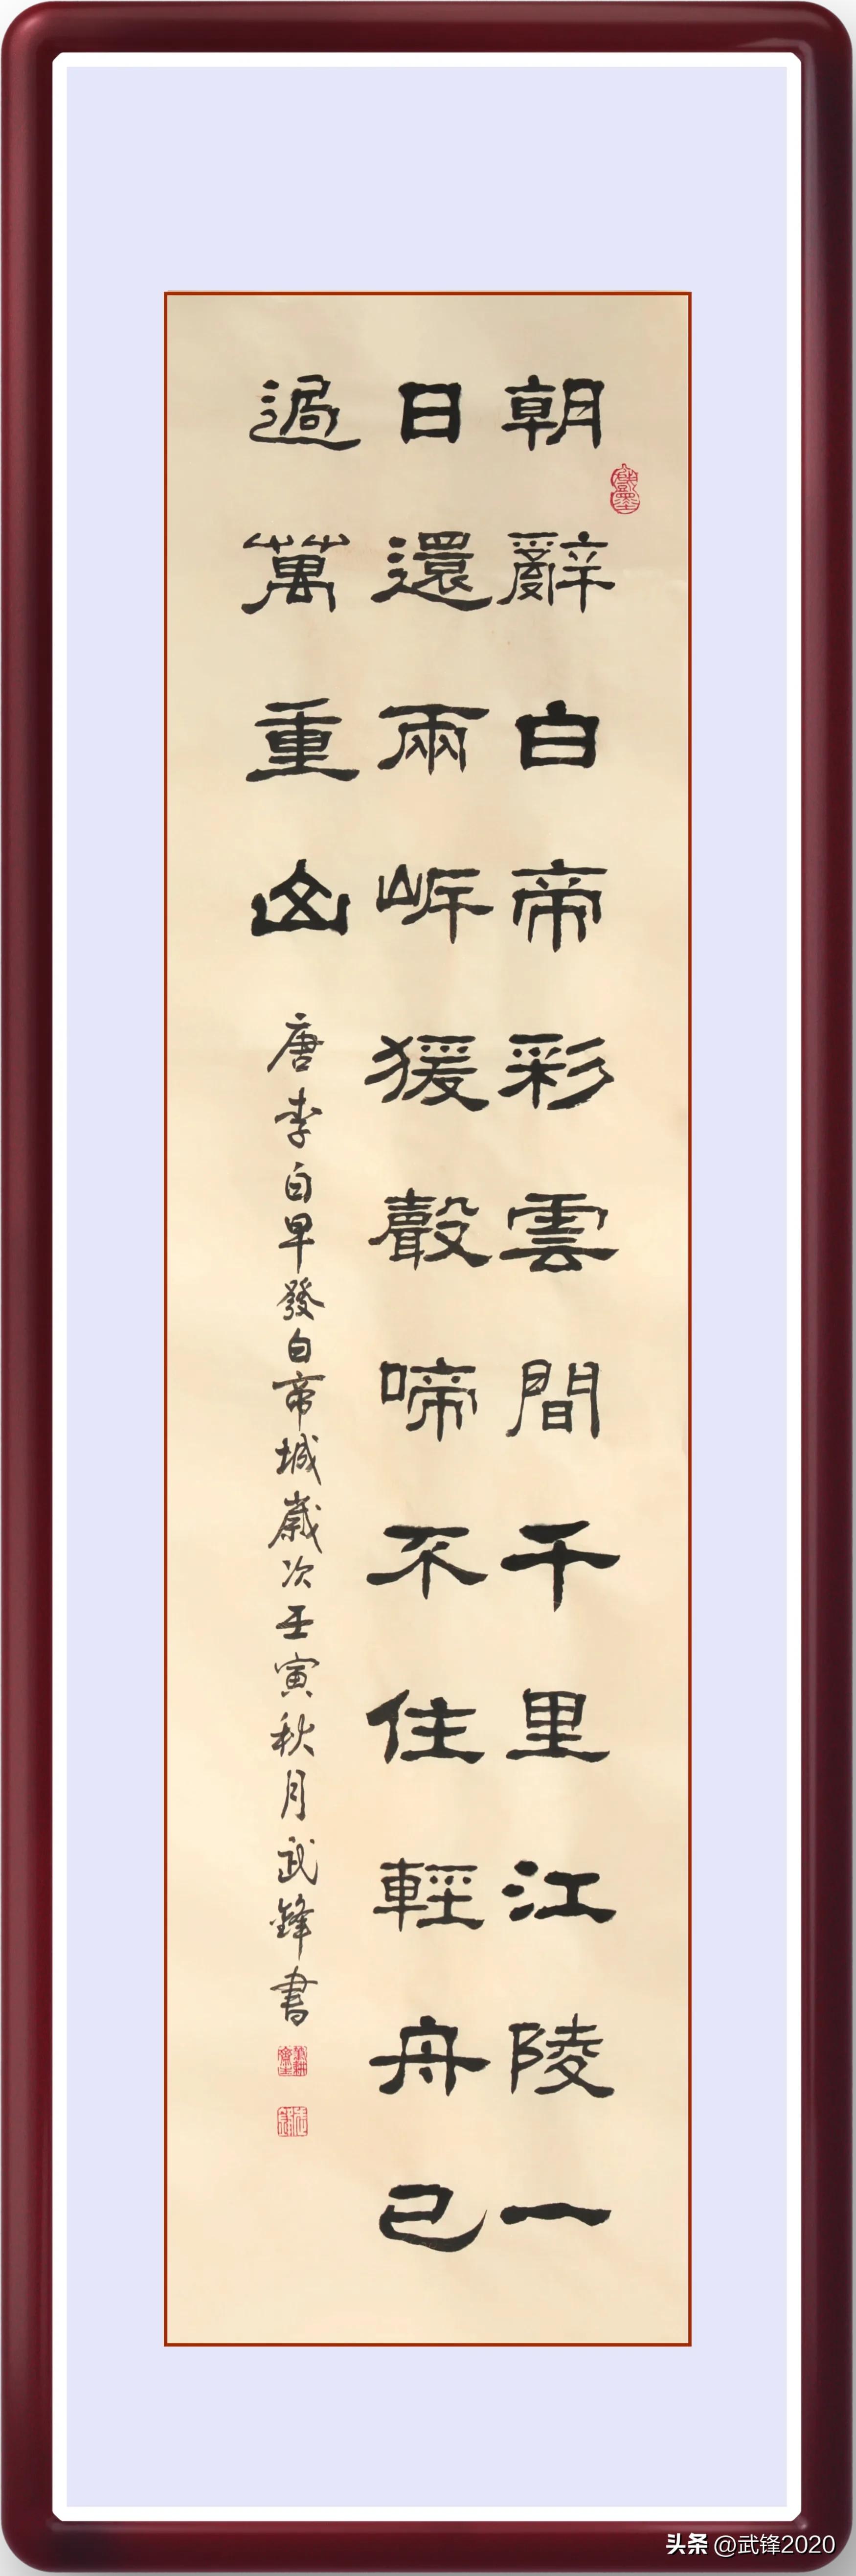 朝辭白帝彩雲間千里江陵一
日還兩岸猨聲啼不住輕舟已
過萬重山
唐李白早發白帝城歲次壬寅秋月武鋒書
头条 @武锋2020